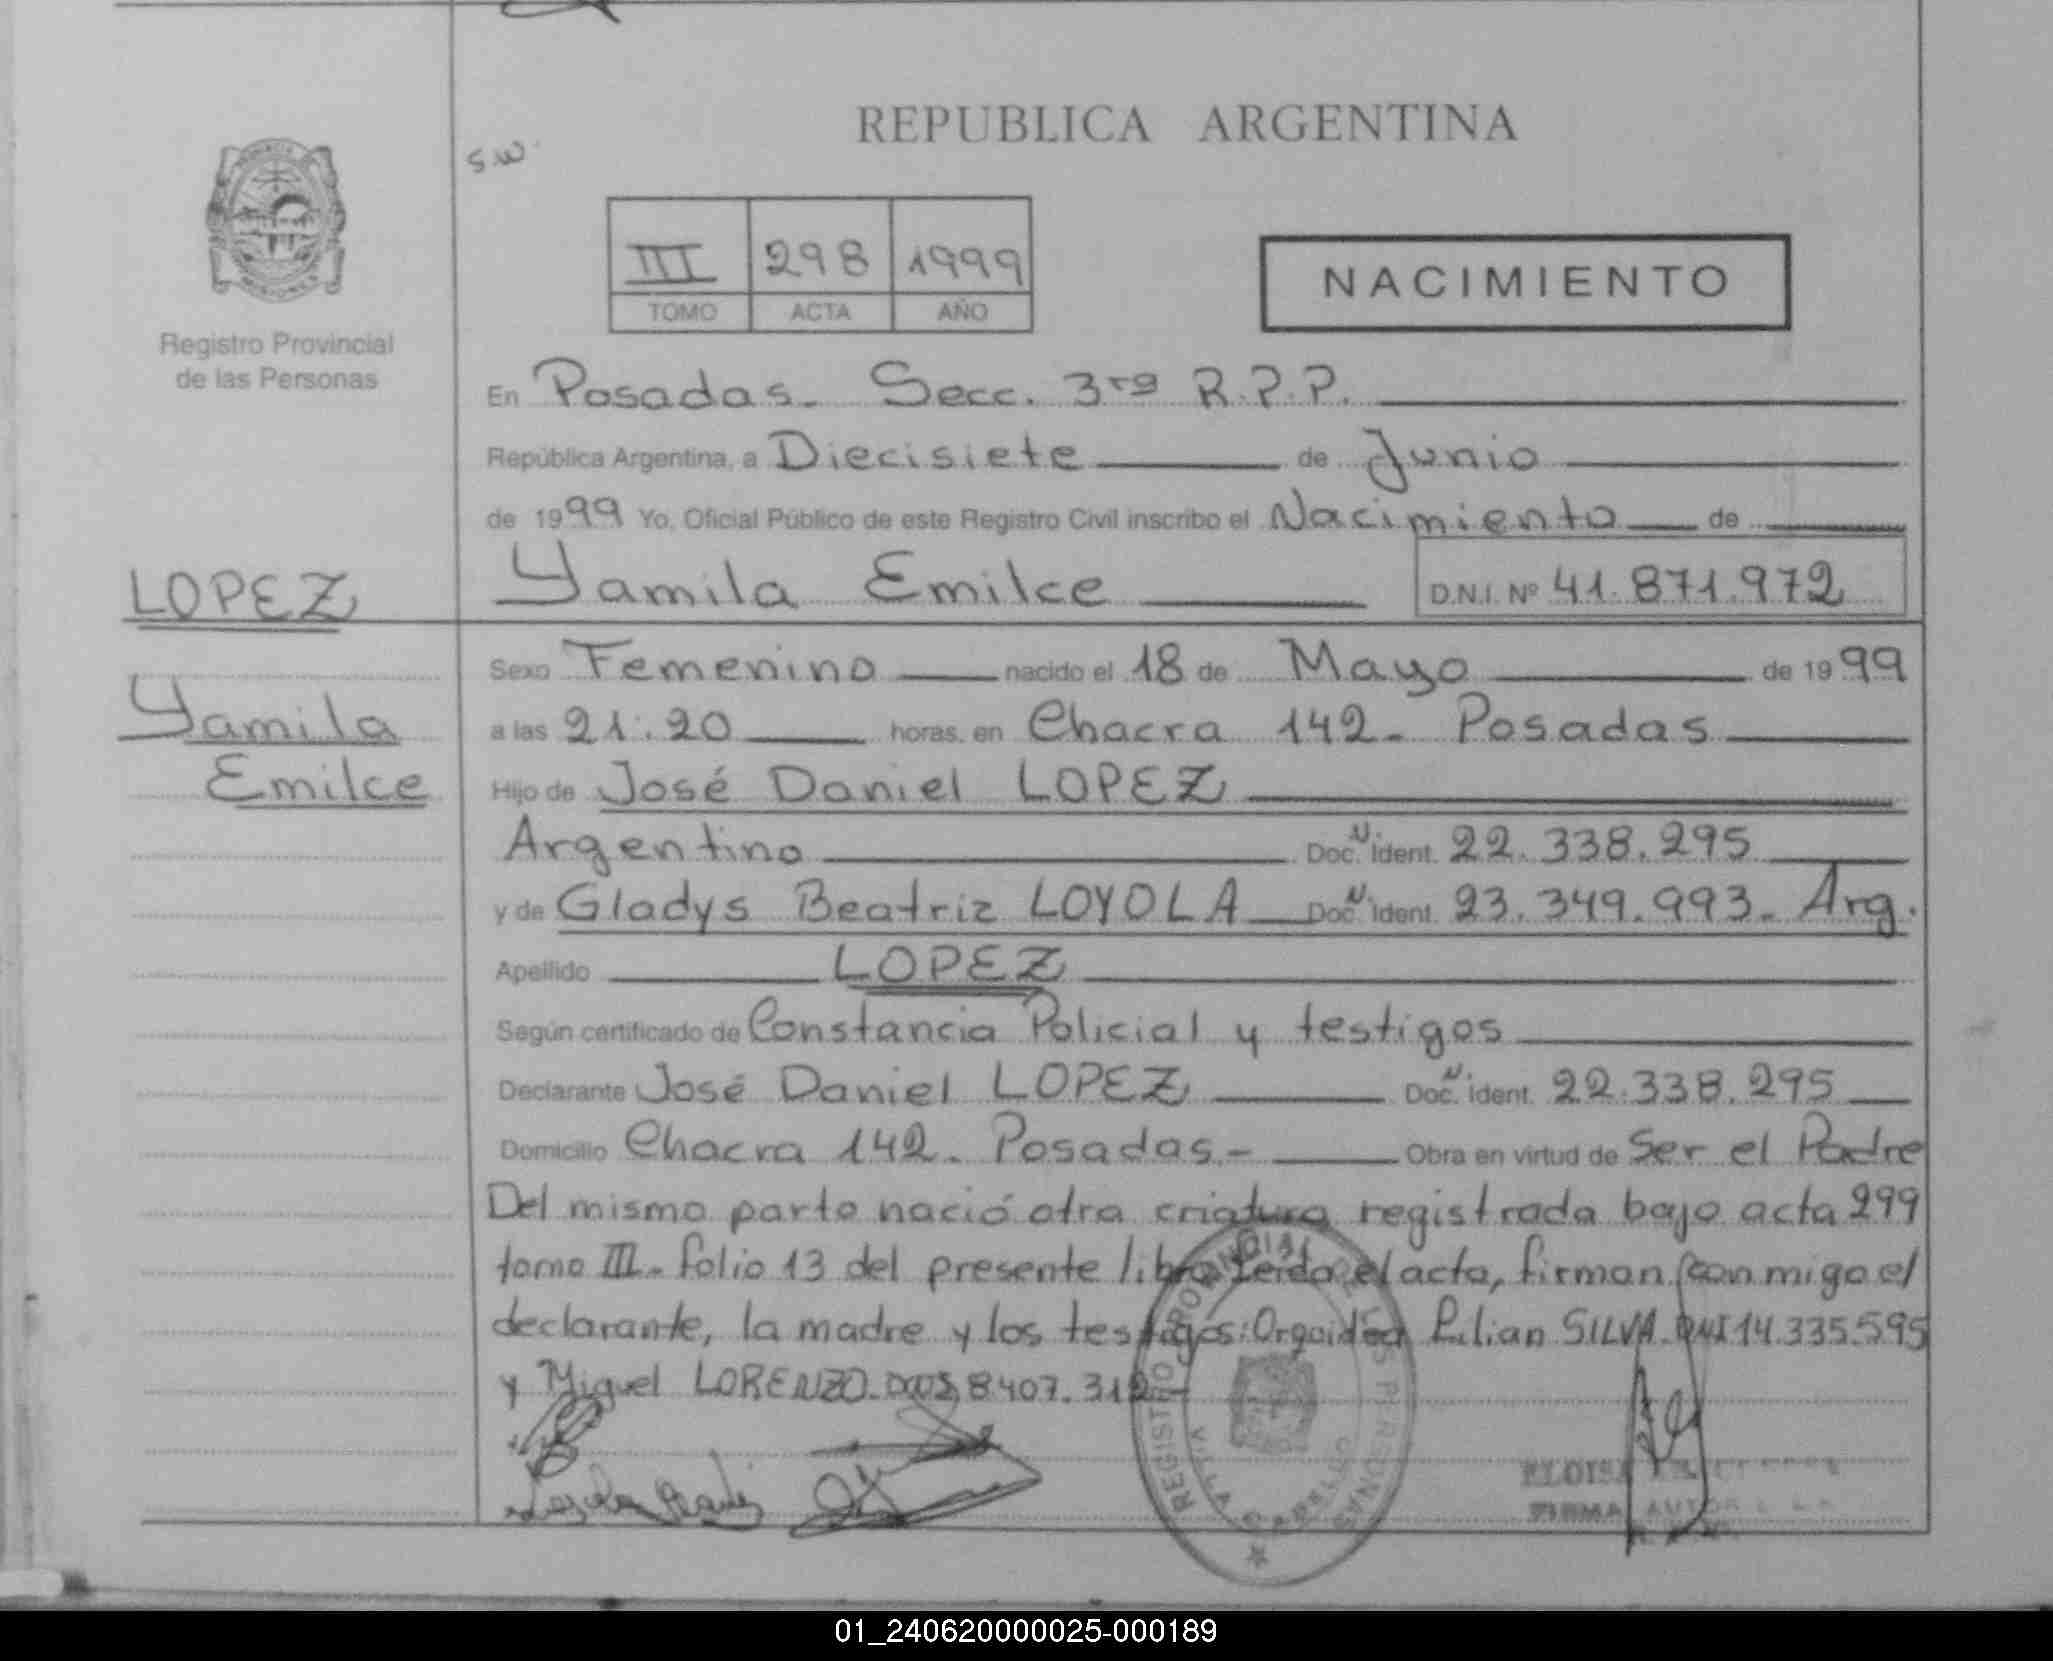 REPUBLICA ARGENTINA
S.W.
III 298 1999
TOMO ACTA AÑO
NACIMIENTO
Registro Provincial
de las Personas
En Posadas. Secc. 3ra R.P.P.
República Argentina, a Diecisiete de Junio
de 1999 Yo, Oficial Público de este Registro Civil inscribo el Nacimiento de
LOPEZ
Yamila Emilce
D.N.I. Nº 41.871.972
Yamila
Emilce
Sexo Femenino nacido el 18 de Mayo de 1999
a las 21:20 horas, en Chacra 142. Posadas
Hijo de José Daniel LOPEZ
Argentino Doc. N. Ident. 22.338.295
y de Gladys Beatriz LOYOLA Doc. N. Ident. 23.349.993. Arg.
Apellido LOPEZ
Según certificado de Constancia Policial y testigos
Declarante José Daniel LOPEZ Doc. N. Ident. 22.338.295
Domicilio Chacra 142. Posadas.- Obra en virtud de Ser el Padre
Del mismo parto nació otra criatura registrada bajo acta 299
tomo III. folio 13 del presente libro. Leida el acta, firman conmigo el
declarante, la madre y los testigos: Lilian SILVA. DNI 14.335.595
y Miguel LORENZO. 8.407.312
REGISTRO PROVINCIAL DE LAS PERSONAS
ELOISA
FIRMA
01_240620000025-000189